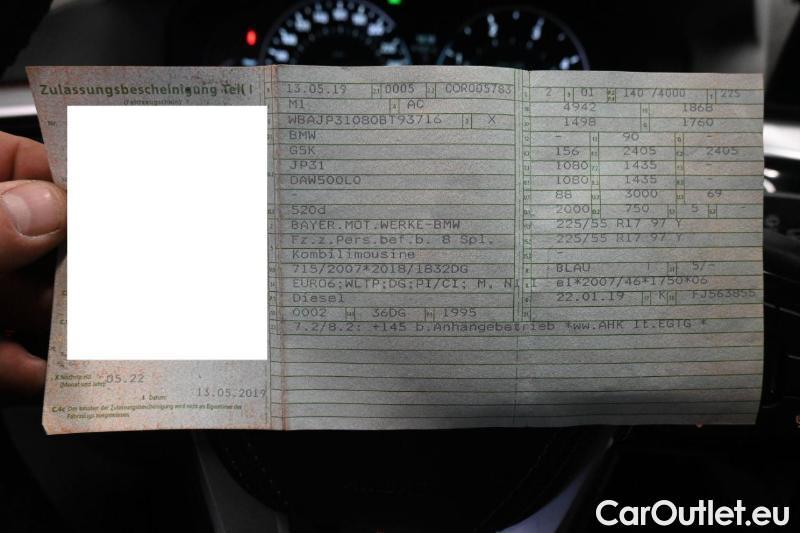 Zulassungsbescheinigung Teil I
(Fahrzeugschein)
Nr.
05.22
(Monat und Jahr)
I Datum: 13.05.2019
C.4c Der Inhaber der Zulassungsbescheinigung wird nicht als Eigentümer des
Fahrzeugs ausgewiesen.
13.05.19 0005 COR005783
M1 4 AC
WBAJP31080BT93716 3 X
BMW
G5K
JP31
DAW500L0
-
520d
BAYER.MOT.WERKE-BMW
Fz.z.Pers.bef.b. 8 Spl.
Kombilimousine
715/2007*2018/1832DG
EURO6;WLTP;DG;PI/CI; M, N1 I
Diesel
0002 36DG 1995
7.2/8.2: +145 b.Anhängebetrieb *ww.AHK lt.EGTG *
2 01 140 /4000 225
4942 1868
1498 1760
- 90 -
156 2405 2405
1080 1435 -
1080 1435 -
88 3000 69
2000 750 5 -
225/55 R17 97 Y
225/55 R17 97 Y
-
BLAU 5/-
e1*2007/46*1750*06
22.01.19 K FJ563855
CarOutlet.eu